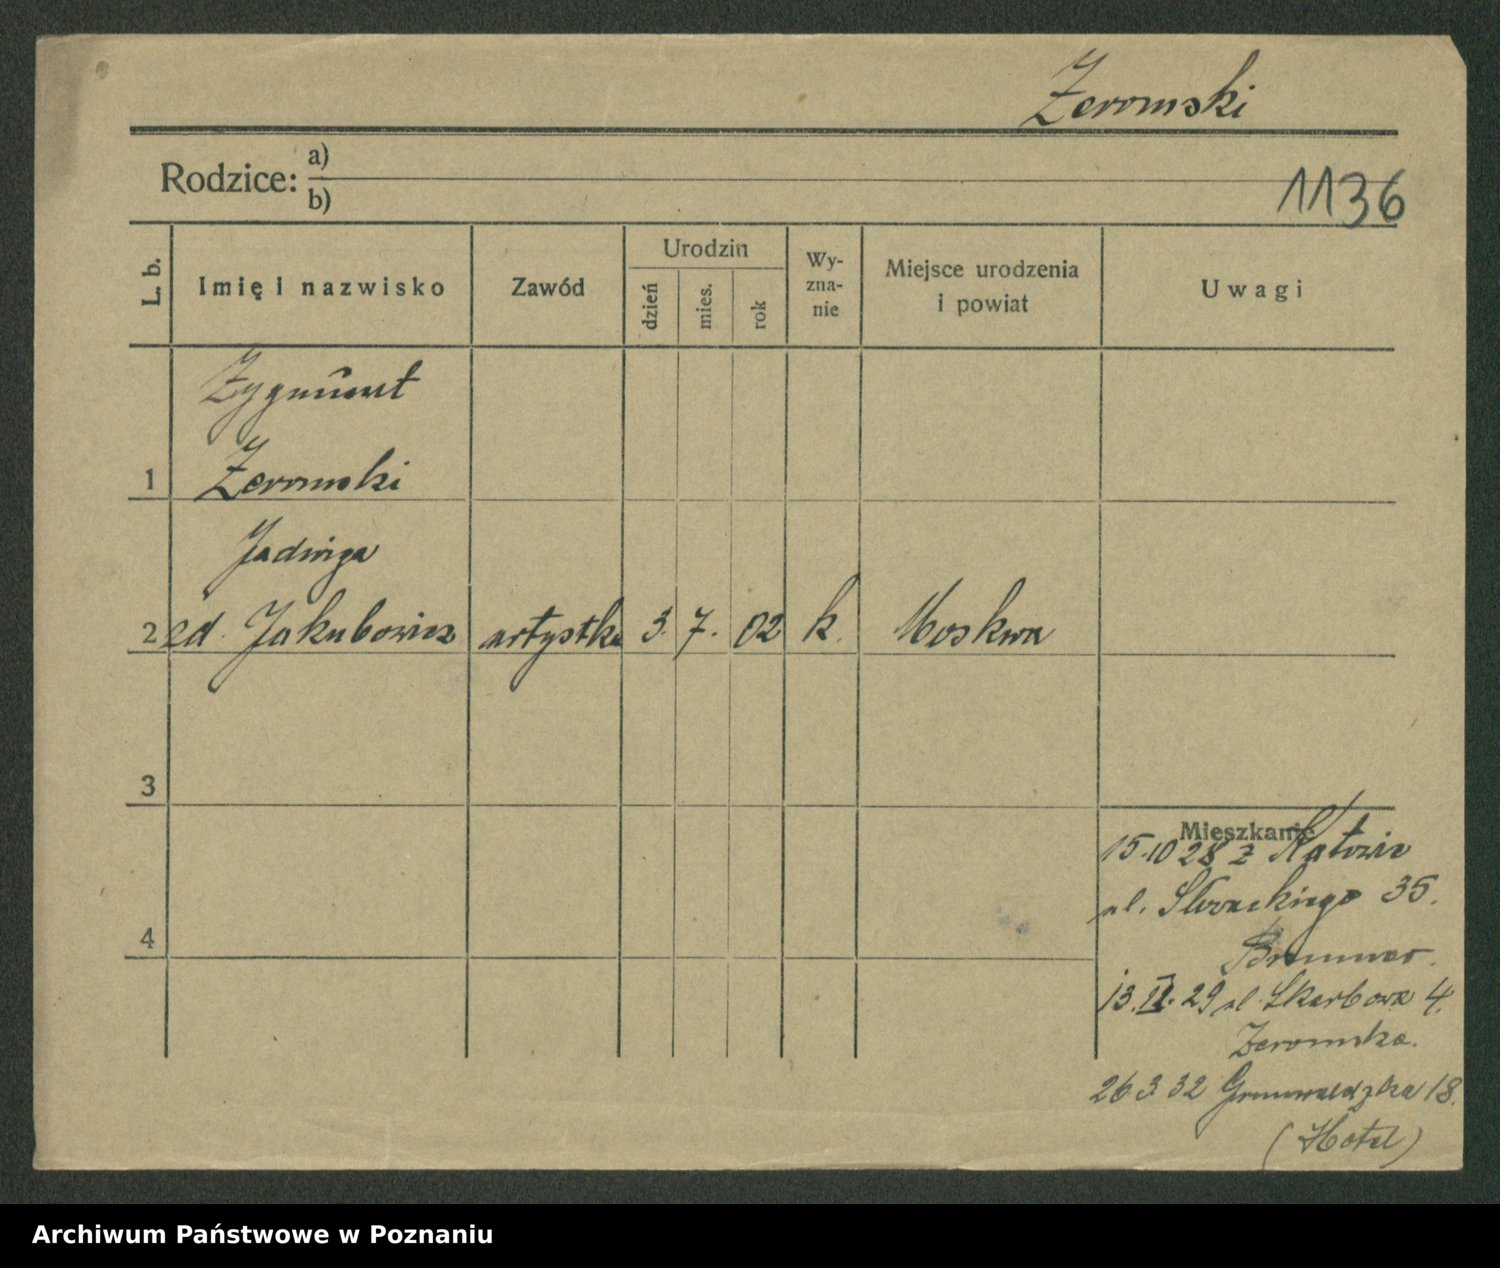 Żeromski
Rodzice: a)
b)
1136
L. b.
Imię i nazwisko
Zawód
Urodzin
dzień
mies.
rok
Wy-
zna-
nie
Miejsce urodzenia
i powiat
Uwagi
Zygmunt
1 Żeromski
Jadwiga
2 zd. Jakubowicz artystka 3. 7. 02 k. Moskwa
3
Mieszkanie
15.10 28 z Katowic
ul. Słowackiego 35.
4
Brunner.
13.II.29 ul. Skarbowa 4.
Żeromska.
26.3.32 Grunwaldzka 18.
(Hotel)
Archiwum Państwowe w Poznaniu